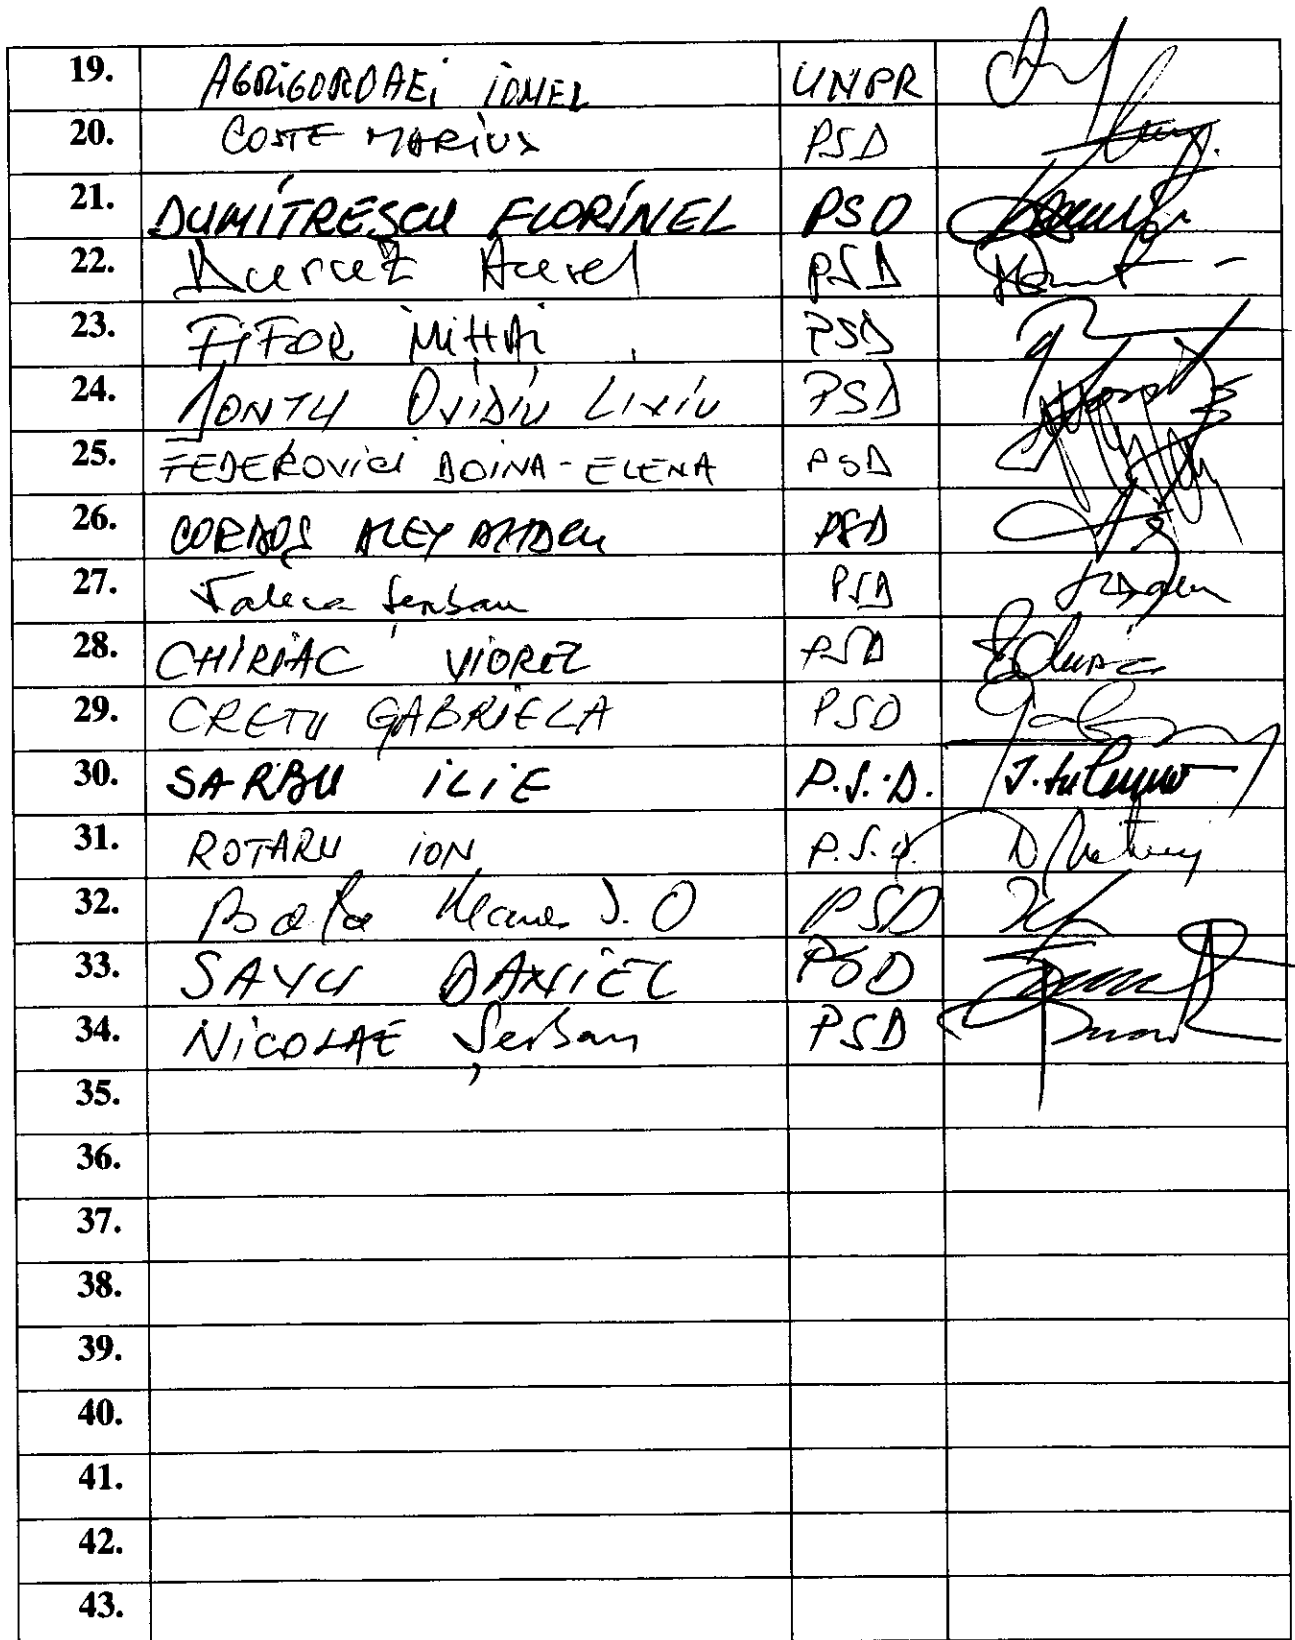 19. AGRIGOROAEi iONEL UNPR
20. COSTE MARIUS PSD
21. DUMITRESCU FLORINEL PSD
22. Aurel PSD
23. FIFOR MiHAi PSD
24. OViDiU LiViU PSD
25. FEDEROViCi DOINA-ELENA PSD
26. CORDOȘ ALEXANDRU PSD
27. Valeca Șerban PSD
28. CHIRIAC VIOREL PSD
29. CREȚU GABRIELA PSD
30. SARBU iLiE P.S.D.
31. ROTARU iON P.S.D.
32. PSD
33. SAVU DANIEL PSD
34. NiCOLAE Șerban PSD
35.
36.
37.
38.
39.
40.
41.
42.
43.